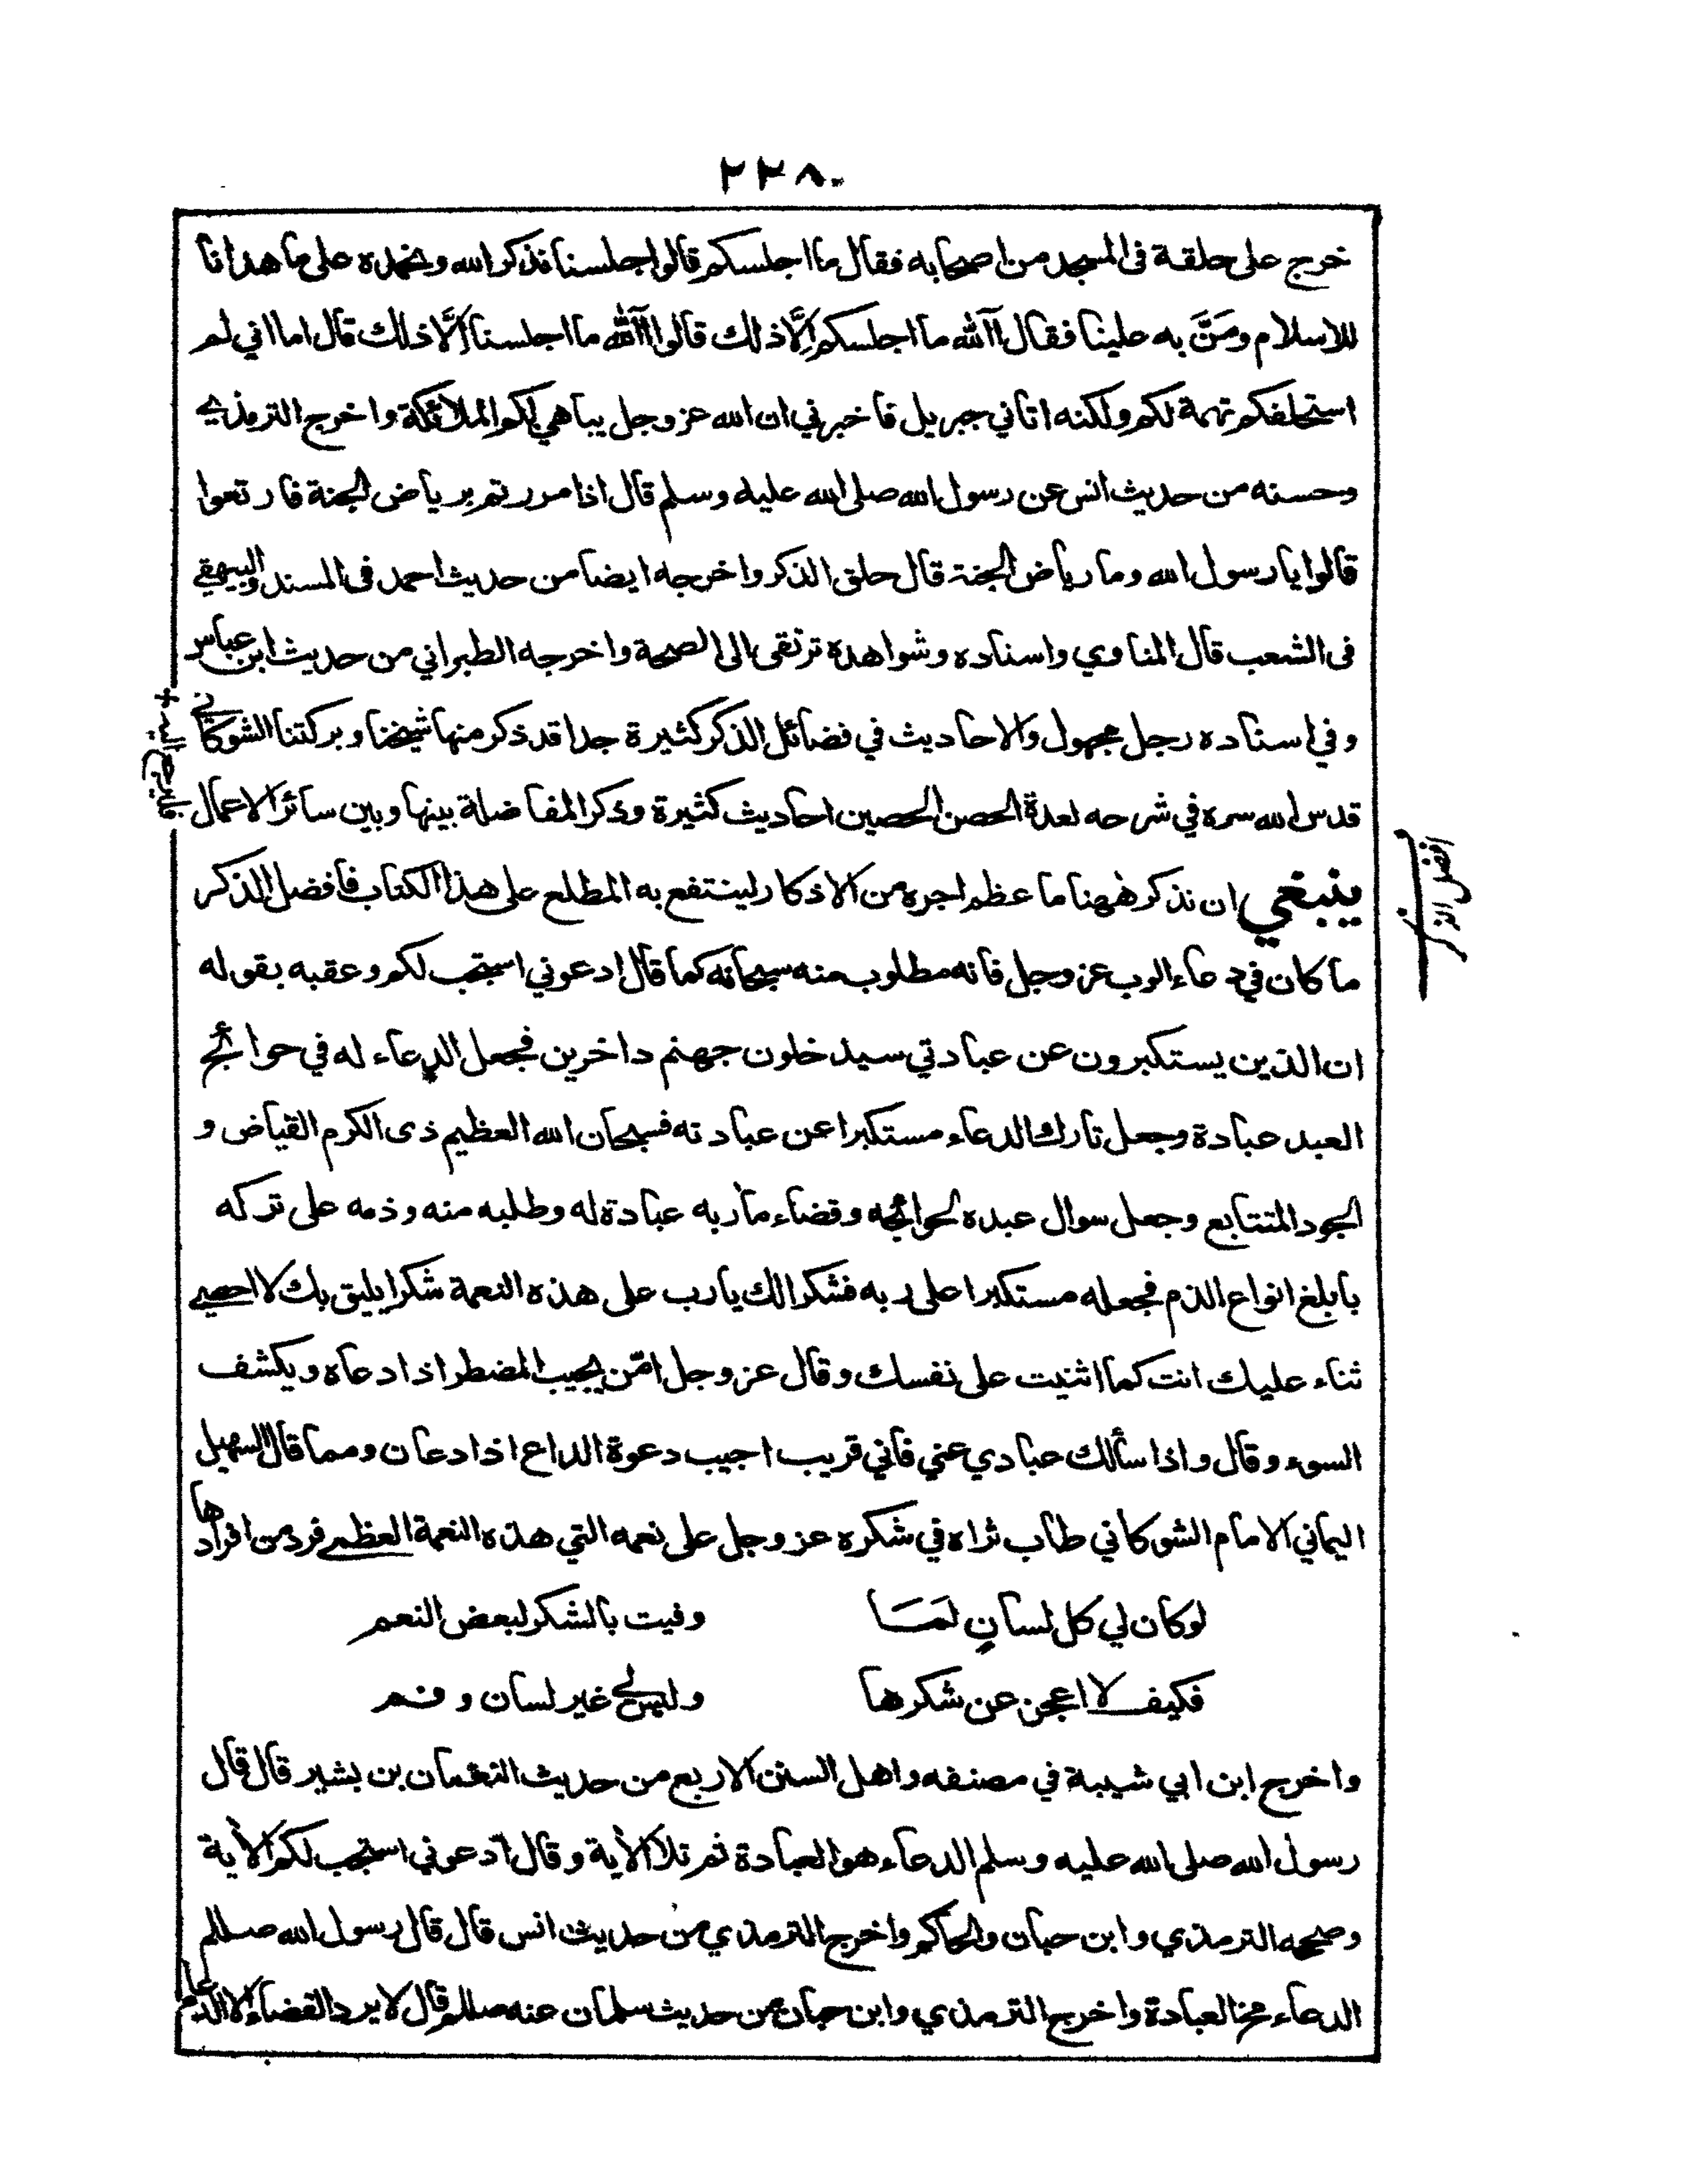 ٢٢٨
خرج على حلقة فى المسجد من اصحابه فقال ما اجلسكم قالوا جلسنا نذكر الله ونحمده على ما هدانا
للاسلام ومَنَّ به علينا فقال آلله ما اجلسكم اِلَّا ذلك قالوا آلله ما اجلسنا اِلَّا ذلك قال اما اني لم
استحلفكم تهمة لكم ولكنه اتاني جبريل فاخبرني ان الله عز وجل يباهي بكم الملائكة واخرج الترمذي
وحسنه من حديث انس عن رسول الله صلى الله عليه وسلم قال اذا مررتم برياض الجنة فارتعوا
قالوا يا رسول الله وما رياض الجنة قال حلق الذكر واخرجه ايضا من حديث احمد فى المسند والبيهقي
فى الشعب قال المناوي واسناده وشواهده ترتقى الى الصحة واخرجه الطبراني من حديث ابن عباس
وفي اسناده رجل مجهول والاحاديث في فضائل الذكر كثيرة جدا قد ذكر منها شيخنا وبركتنا الشوكاني
فليرجع اليه +
قدس الله سره في شرحه لعدة الحصن الحصين احاديث كثيرة وذكر المفاضلة بينها وبين سائر الاعمال
افضل الذكر
ينبغي ان نذكر ههنا ما عظم اجره من الاذكار لينتفع به المطلع على هذا الكتاب فافضل الذكر
ما كان في دعاء الرب عز وجل فانه مطلوب منه سبحانه كما قال ادعوني استجب لكم وعقبه بقوله
ان الذين يستكبرون عن عبادتي سيدخلون جهنم داخرين فجعل الدعاء له في حوائج
العبد عبادة وجعل تارك الدعاء مستكبرا عن عبادته فسبحان الله العظيم ذى الكرم الفياض و
الجود المتتابع وجعل سوال عبده لحوائجه وقضاء مأربه عبادة له وطلبه منه وذمه على تركه
بابلغ انواع الذم فجعله مستكبرا على ربه فشكرا لك يا رب على هذه النعمة شكرا يليق بك لا احصي
ثناء عليك انت كما اثنيت على نفسك وقال عز وجل امّن يجيب المضطر اذا دعاه ويكشف
السوء وقال واذا سألك عبادي عني فاني قريب اجيب دعوة الداع اذا دعان ومما قال السهيل
اليماني الامام الشوكاني طاب ثراه في شكره عز وجل على نعمه التي هذه النعمة العظمى فرد من افرادها
لو كان لي كل لسانٍ لَمَا وفيت بالشكر لبعض النعم
فكيف لا اعجز عن شكرها وليس لي غير لسان وفم
واخرج ابن ابي شيبة في مصنفه واهل السنن الاربع من حديث النعمان بن بشير قال قال
رسول الله صلى الله عليه وسلم الدعاء هو العبادة ثم تلا الأية وقال ادعوني استجب لكم الأية
وصححه الترمذي وابن حبان والحاكم واخرج الترمذي من حديث انس قال قال رسول الله صللم
الدعاء مخ العبادة واخرج الترمذي وابن حبان من حديث سلمان عنه صللم قال لا يرد القضاء الا الدعاء